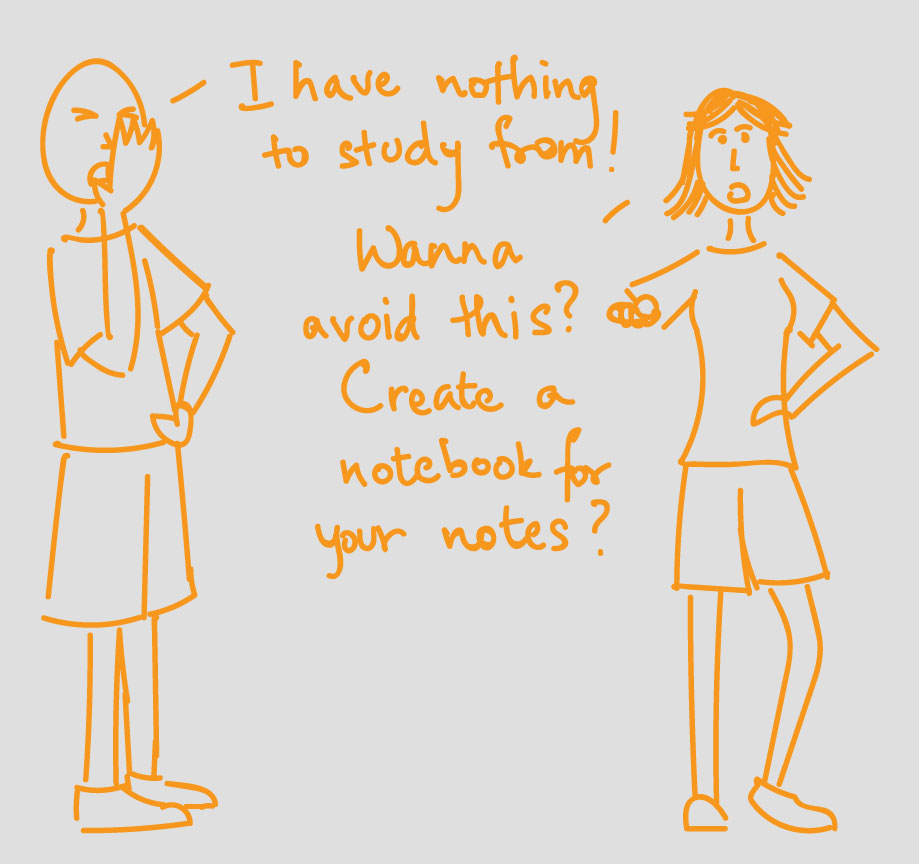 I have nothing
to study from!
Wanna
avoid this?
Create a
notebook for
your notes?